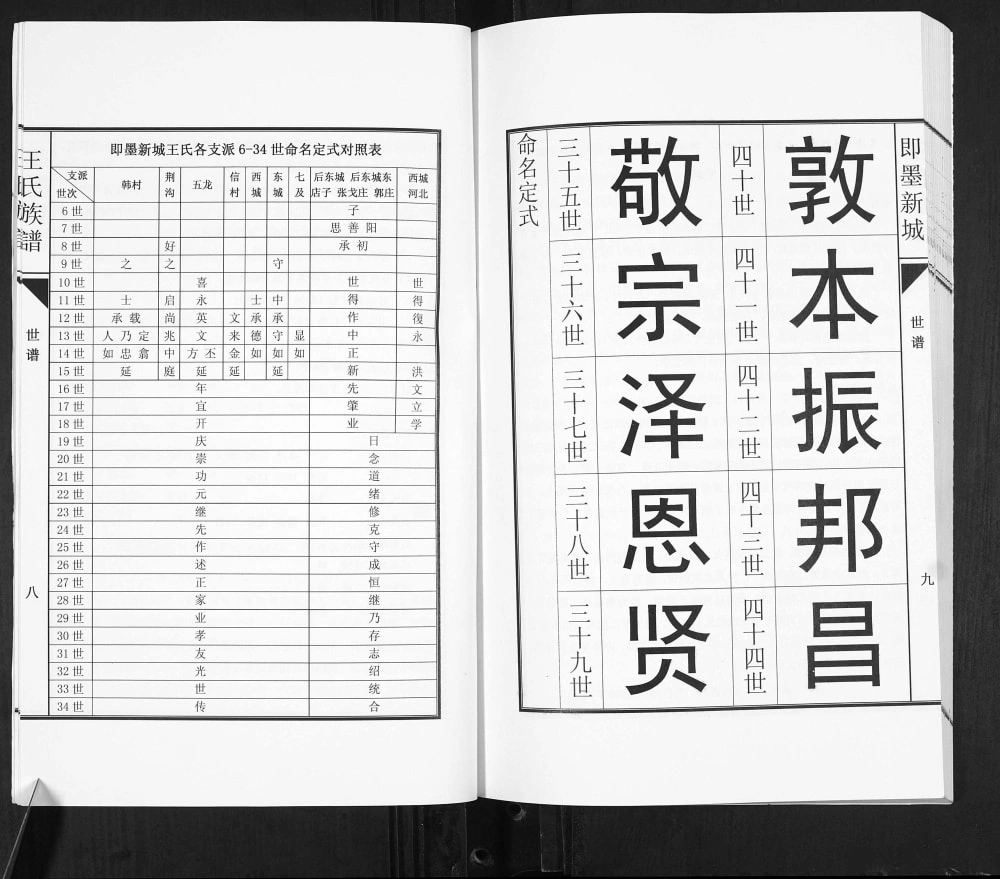 王氏族譜
世谱
八
即墨新城王氏各支派6-34世命名定式对照表
支派 世次 韩村 荆沟 五龙 信村 西城 东城 七及 后东城 后东城东 店子 张戈庄 郭庄 西城河北
6世 子
7世 思善阳
8世 好 承初
9世 之 之 守
10世 喜 世 世
11世 士 启 永 士 中 得 得
12世 承载 尚 英 文 承 承 作 復
13世 人乃定 兆 文 来 德 守 显 中 永
14世 如忠翕 中 方丕 金 如 如 如 正
15世 延 庭 延 延 延 新 洪
16世 年 先 文
17世 宜 肇 立
18世 开 业 学
19世 庆 日
20世 崇 念
21世 功 道
22世 元 绪
23世 继 修
24世 先 克
25世 作 守
26世 述 成
27世 正 恒
28世 家 继
29世 业 乃
30世 孝 存
31世 友 志
32世 光 绍
33世 世 统
34世 传 合
命名定式
三十五世 敬
三十六世 宗
三十七世 泽
三十八世 恩
三十九世 贤
四十世 敦
四十一世 本
四十二世 振
四十三世 邦
四十四世 昌
即墨新城
世谱
九